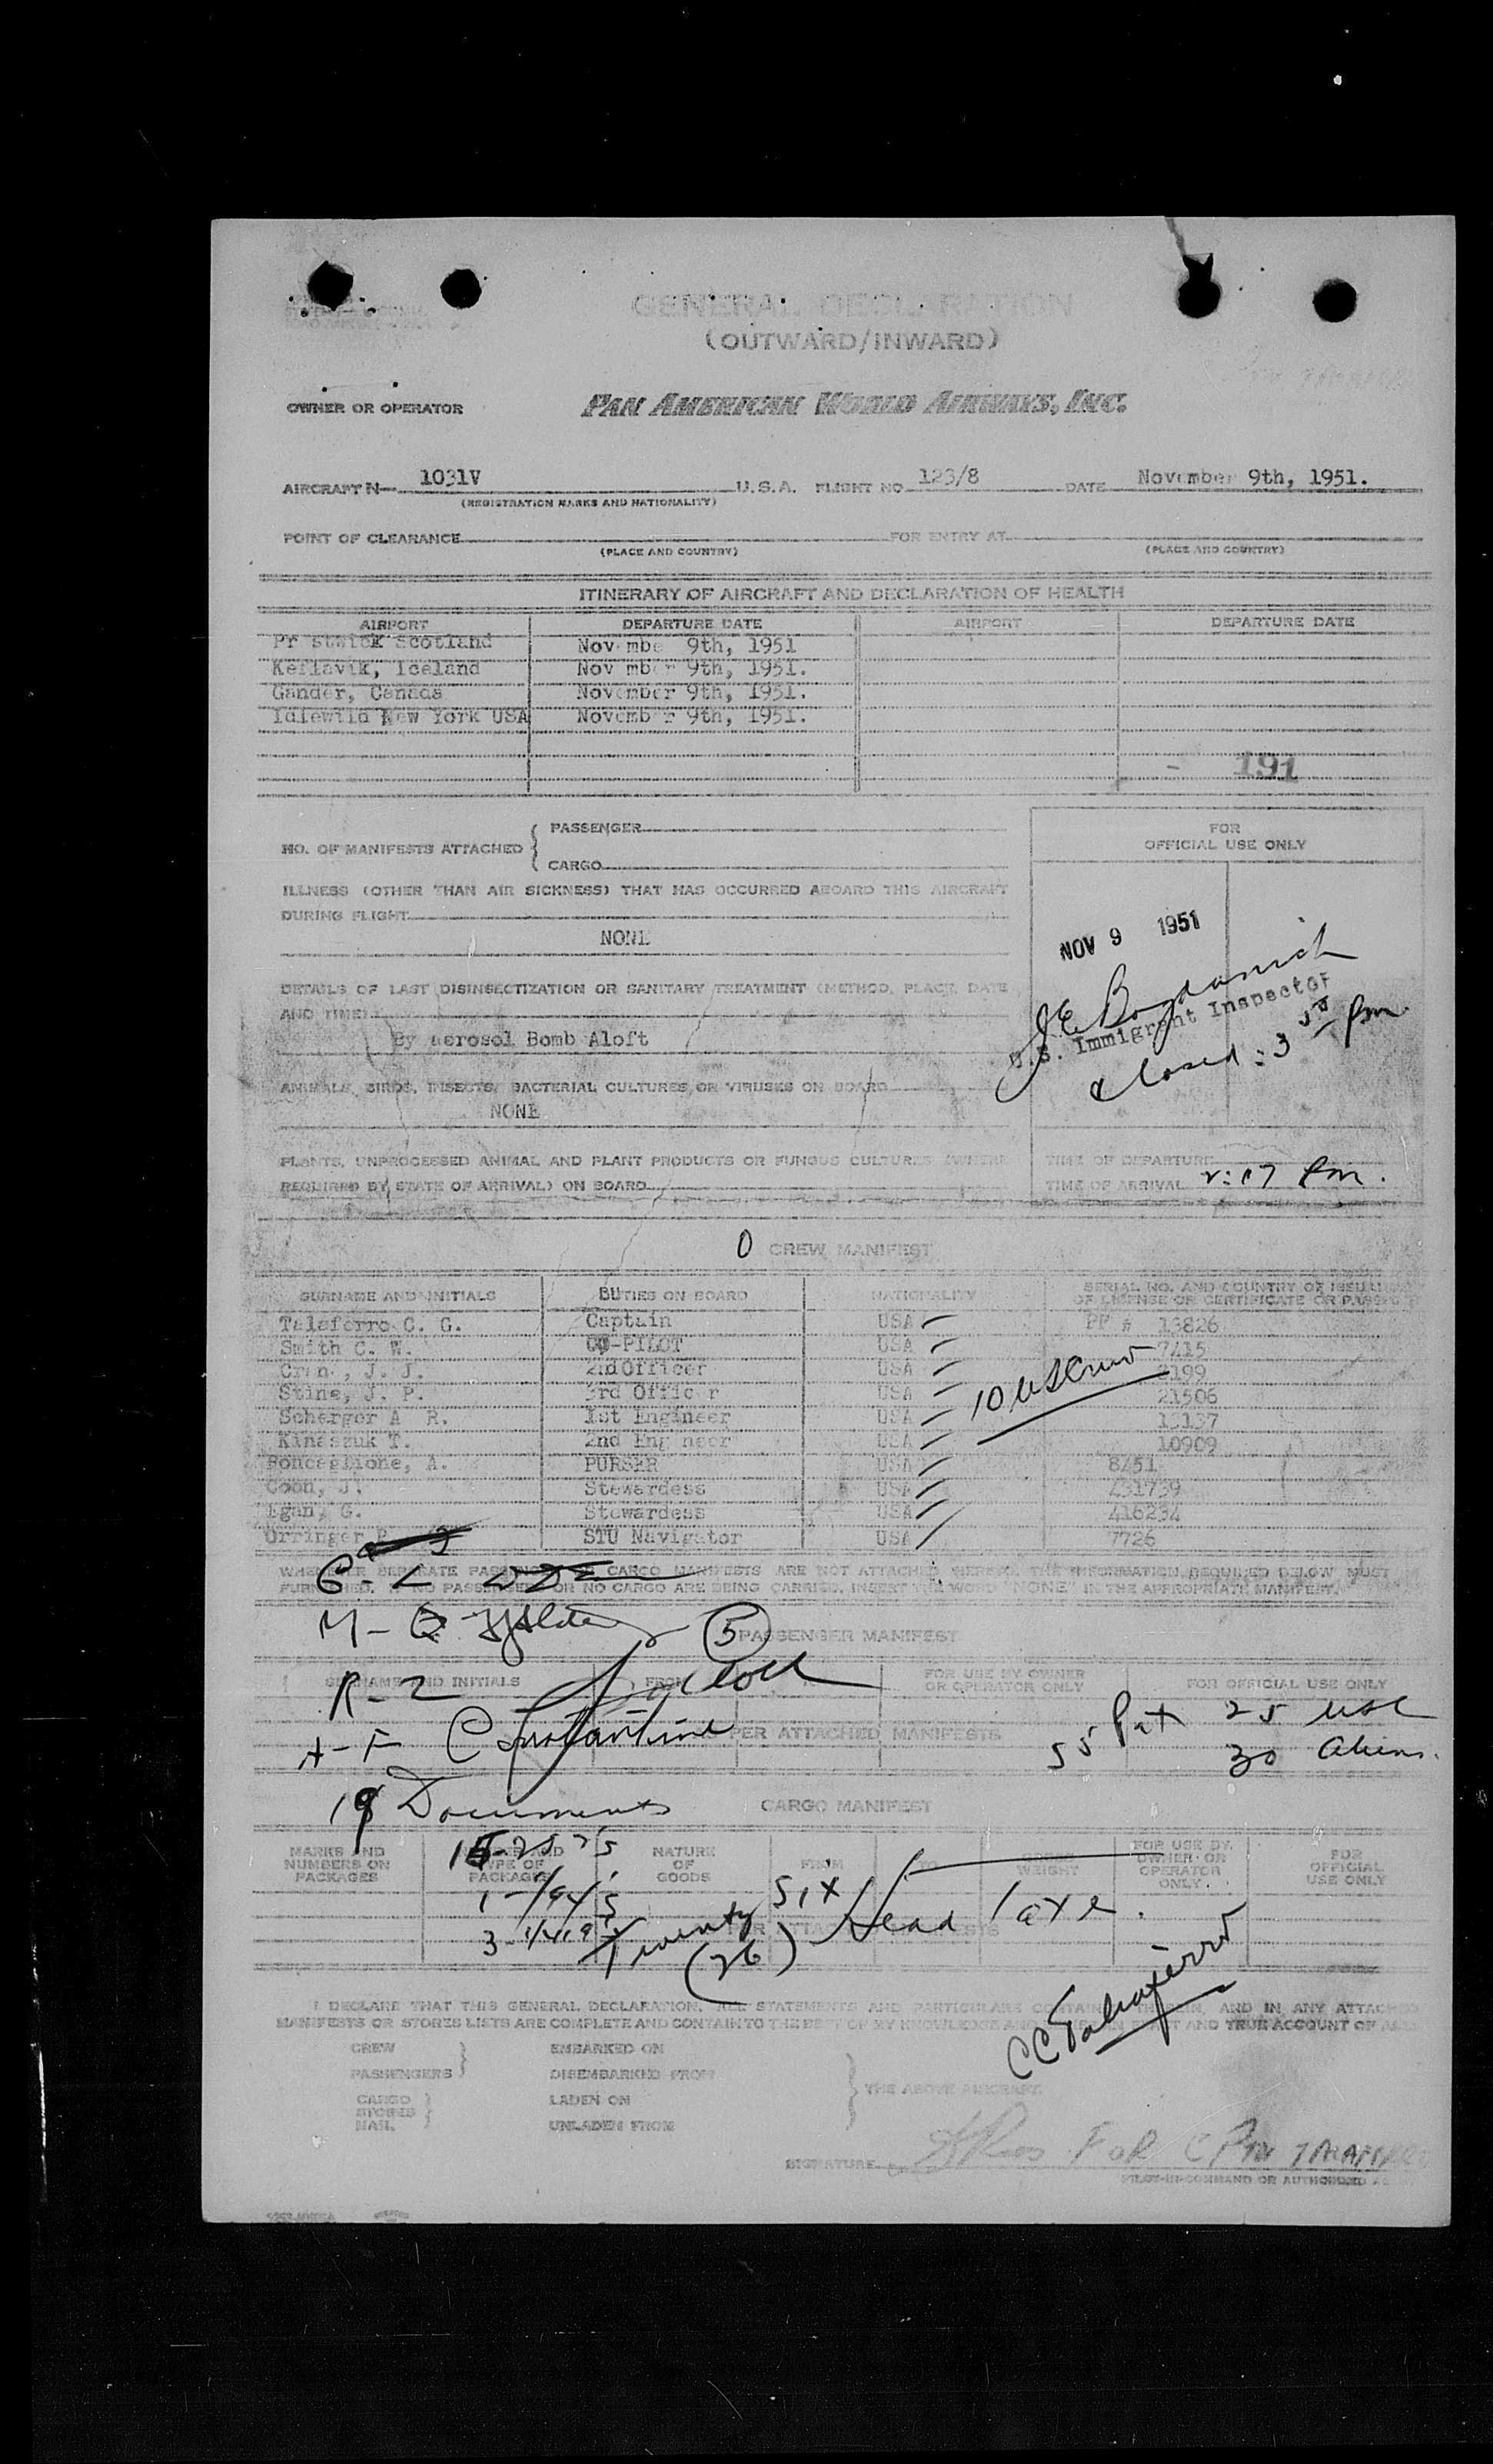 GENERAL DECLARATION
(OUTWARD/INWARD)
OWNER OR OPERATOR PAN AMERICAN WORLD AIRWAYS, INC.
AIRCRAFT N— 1031V U.S.A. FLIGHT NO 123/8 DATE November 9th, 1951.
(REGISTRATION MARKS AND NATIONALITY)
POINT OF CLEARANCE FOR ENTRY AT
(PLACE AND COUNTRY) (PLACE AND COUNTRY)
ITINERARY OF AIRCRAFT AND DECLARATION OF HEALTH
AIRPORT DEPARTURE DATE AIRPORT DEPARTURE DATE
Pr stwick Scotland Novembe 9th, 1951
Keflavik, Iceland November 9th, 1951.
Gander, Canada November 9th, 1951.
Idlewild New York USA November 9th, 1951.
191
NO. OF MANIFESTS ATTACHED PASSENGER
CARGO
FOR
OFFICIAL USE ONLY
ILLNESS (OTHER THAN AIR SICKNESS) THAT HAS OCCURRED ABOARD THIS AIRCRAFT
DURING FLIGHT
NONE
NOV 9 1951
DETAILS OF LAST DISINSECTIZATION OR SANITARY TREATMENT (METHOD, PLACE, DATE
AND TIME)
By aerosol Bomb Aloft
U.S. Immigrant Inspector
Closed: 3 pm.
ANIMALS, BIRDS, INSECTS, BACTERIAL CULTURES, OR VIRUSES ON BOARD
NONE
PLANTS, UNPROCESSED ANIMAL AND PLANT PRODUCTS OR FUNGUS CULTURES (WHERE
REQUIRED BY STATE OF ARRIVAL) ON BOARD
TIME OF DEPARTURE
TIME OF ARRIVAL 2:17 Pm.
0 CREW MANIFEST
SURNAME AND INITIALS DUTIES ON BOARD NATIONALITY SERIAL NO. AND COUNTRY OF ISSUING
OF LICENSE OR CERTIFICATE OR PASSPORT
Talaferro C. G. Captain USA PP # 13826
Smith C. W. CO-PILOT USA 7415
J. J. 2nd Officer USA 2199
Stine, J. P. 3rd Offic r USA 21506
Scherger A R. 1st Engineer USA 13137
Kinaszuk T. 2nd Eng neer USA 10909
Boncaglione, A. PURSER USA 8451
Coon, J. Stewardess USA 431739
Egan, G. Stewardess USA 416234
Urringer P. STU Navigator USA 7726
10 US Crew
WHENEVER SEPARATE PASSENGER OR CARGO MANIFESTS ARE NOT ATTACHED HERETO, THE INFORMATION REQUIRED BELOW MUST
FURNISHED. IF NO PASSENGERS OR NO CARGO ARE BEING CARRIED, INSERT THE WORD "NONE" IN THE APPROPRIATE MANIFEST.
5 PASSENGER MANIFEST
SURNAME AND INITIALS FROM FOR USE BY OWNER
OR OPERATOR ONLY FOR OFFICIAL USE ONLY
R-2
Constantine
PER ATTACHED MANIFESTS
55 Pax 25 USC
30 Aliens.
19 Documents
CARGO MANIFEST
MARKS AND
NUMBERS ON
PACKAGES
TYPE OF
PACKAGES
NATURE
OF
GOODS
FROM
TO
GROSS
WEIGHT
FOR USE BY
OWNER OR
OPERATOR
ONLY
FOR
OFFICIAL
USE ONLY
Twenty Six
(26) Head Taxes.
I DECLARE THAT THIS GENERAL DECLARATION, ALL STATEMENTS AND PARTICULARS CONTAINED THEREIN, AND IN ANY ATTACHED
MANIFESTS OR STORES LISTS ARE COMPLETE AND CONTAIN TO THE BEST OF MY KNOWLEDGE AND TRUE ACCOUNT OF
CREW EMBARKED ON
PASSENGERS DISEMBARKED FROM
THE ABOVE AIRCRAFT
CARGO LADEN ON
STORES
MAIL UNLADEN FROM
SIGNATURE FOR CPTN
PILOT-IN-COMMAND OR AUTHORIZED